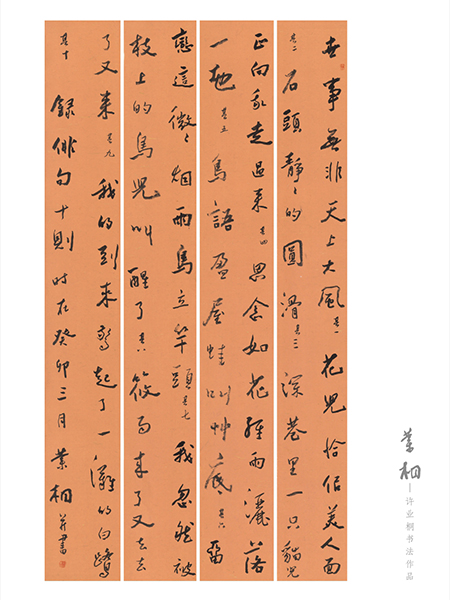 世事無非天上大風其一花兒恰佀美人面
其二石頭靜〻的圓滑其三深巷里一只貓兒
正向我走過来其四思念如花經雨灑落
一地其五鳥語盈屋蛙叫艸底其六留
戀這微〻烟雨鳥立竿頭其七我忽然被
枝上的鳥兒叫醒了其八筱雨来了又去去
了又来其九我的到来驚起了一灘的白鷺
其十錄俳句十則时在癸卯三月業桐并書
業桐
—许业桐书法作品